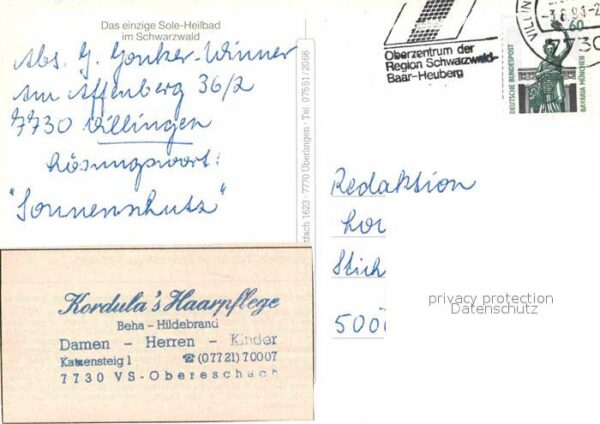 Das einzige Sole-Heilbad
im Schwarzwald
Abs. G. Gonker-Winner
Am Affenberg 36/2
7730 Villingen
Lösungswort:
"Sonnenschutz"
tfach 1623 · 7770 Überlingen · Tel. 07551/2066
Oberzentrum der
Region Schwarzwald-
Baar-Heuberg
VILLIN
-3.6.94-2
7730
60
DEUTSCHE BUNDESPOST
BAVARIA MÜNCHEN
Redaktion
hor
Stich
500
privacy protection
Datenschutz
Kordula's Haarpflege
Beha - Hildebrand
Damen - Herren - Kinder
Katzensteig 1 ☎ (07721) 70007
7730 VS-Obereschach